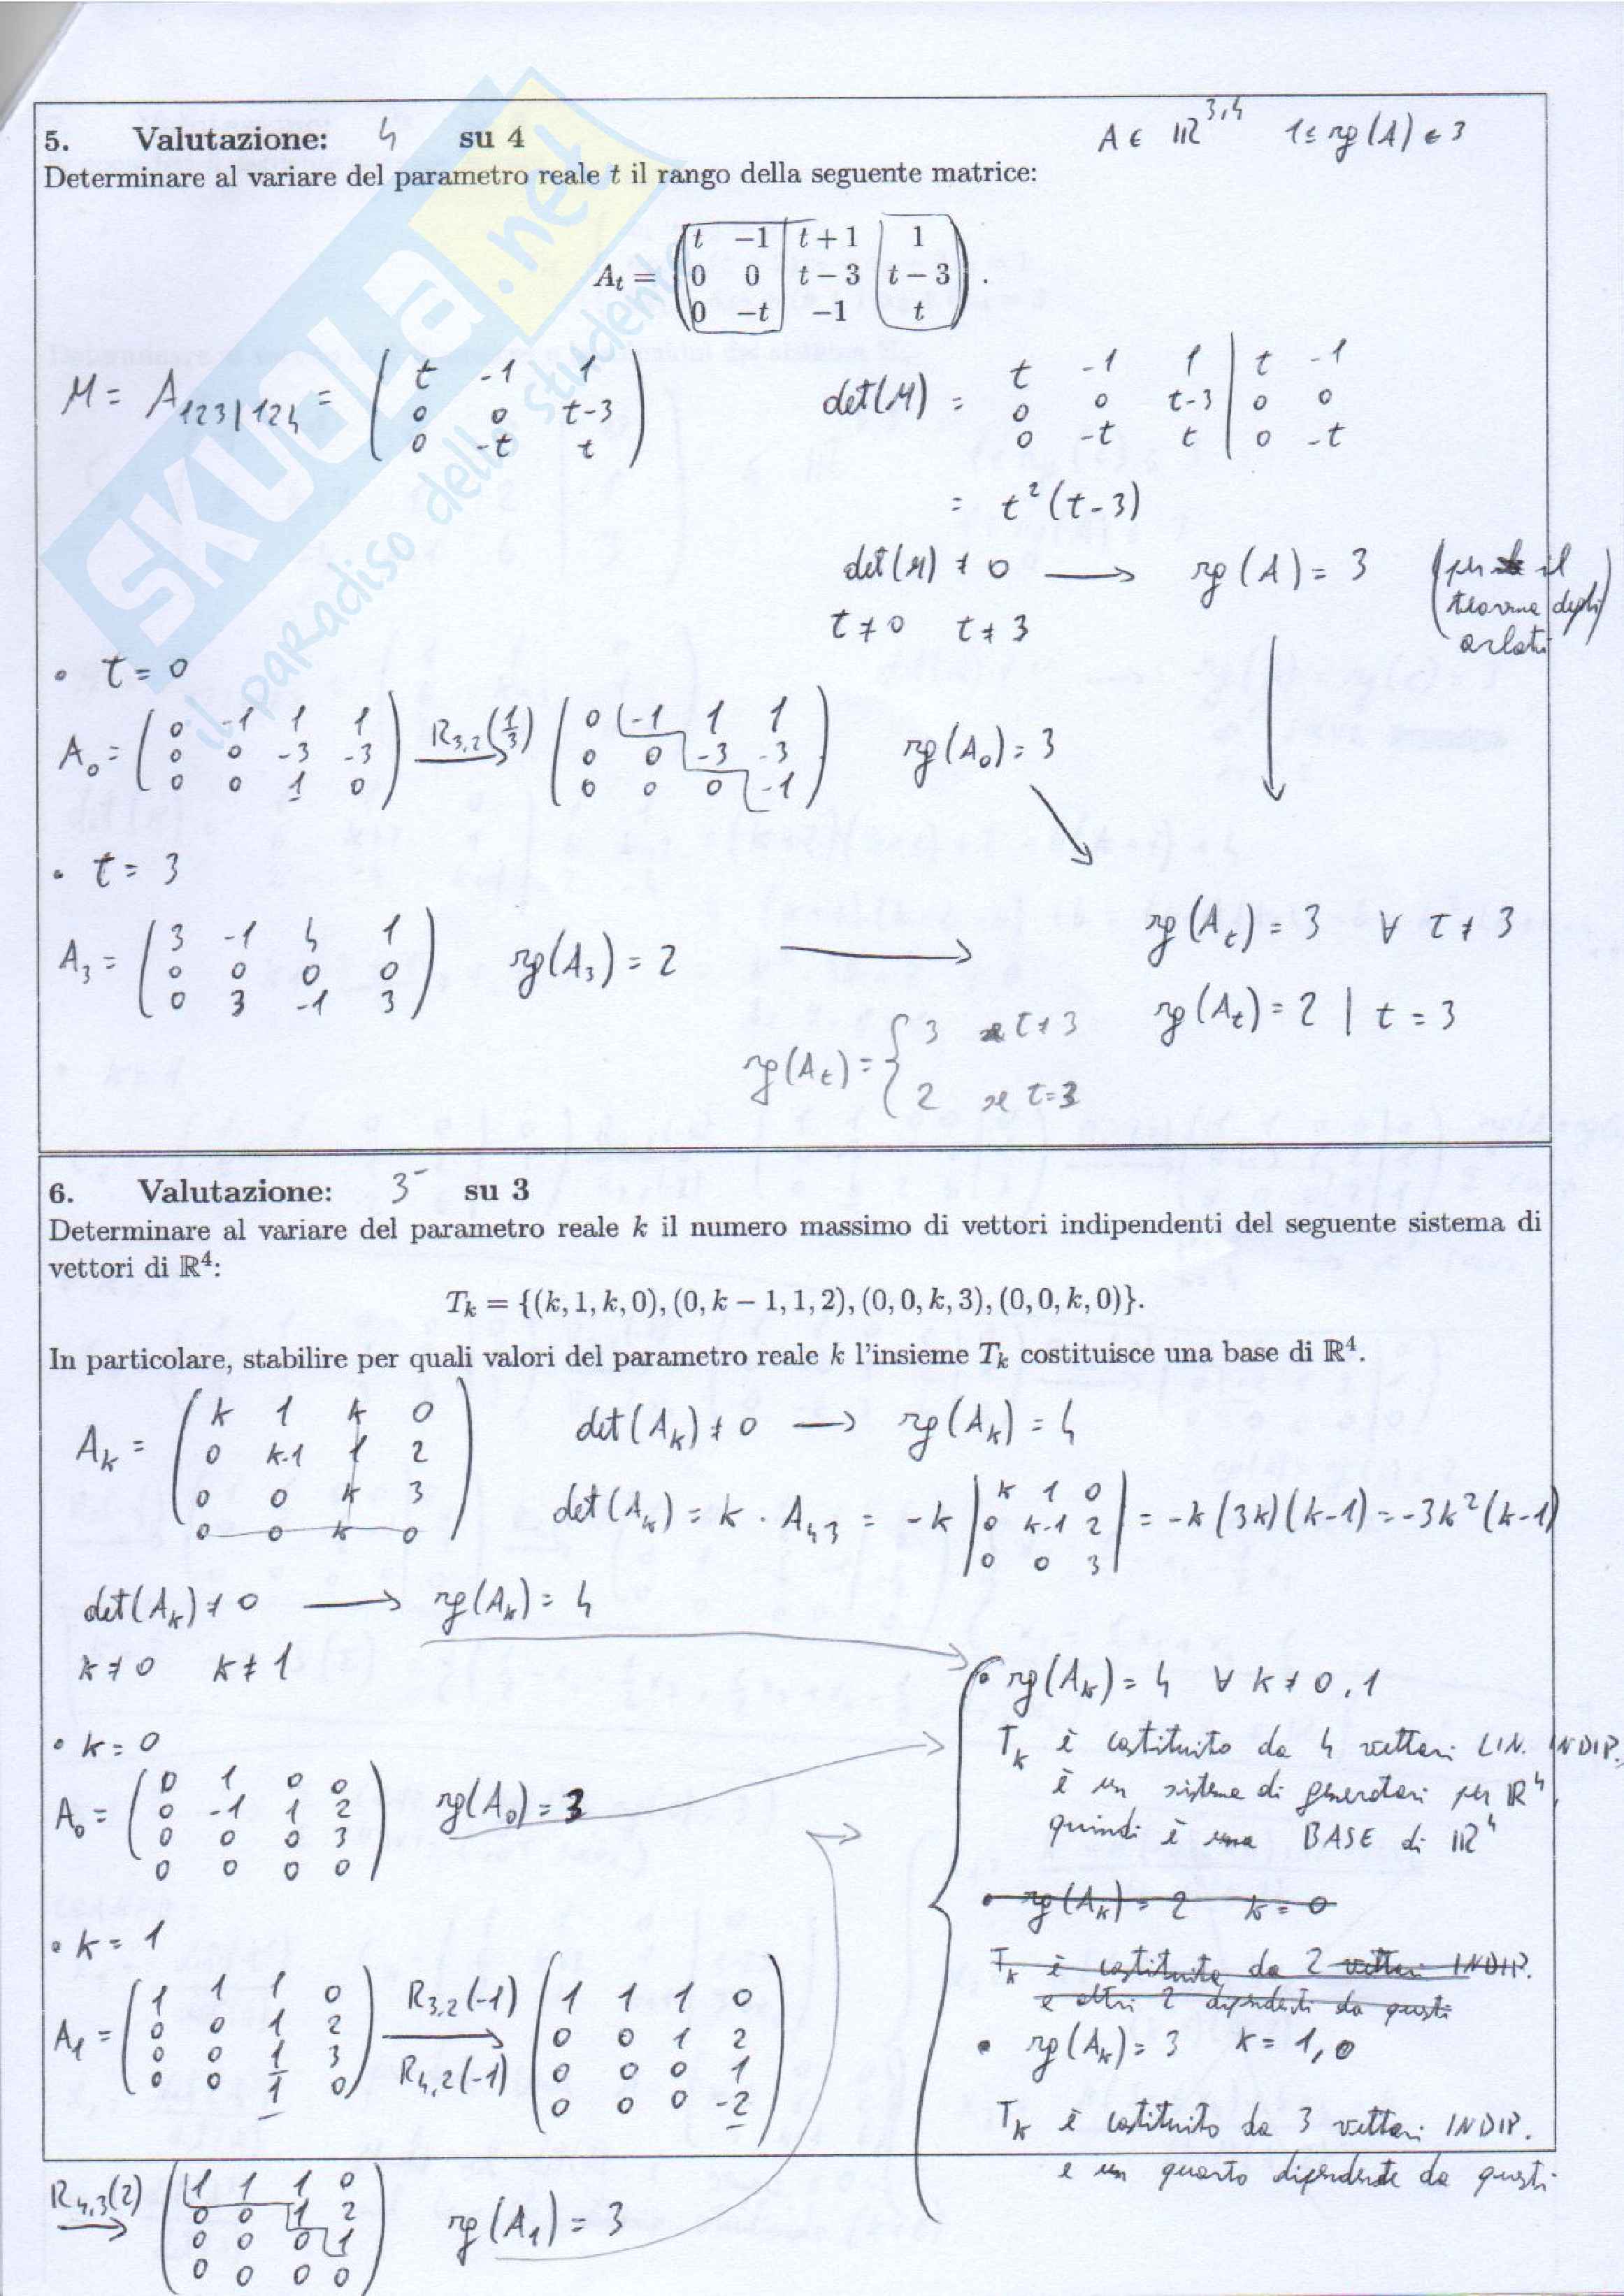 5. Valutazione: 4 su 4
A ∈ ℝ^{3,4} 1 ≤ rg(A) ≤ 3
Determinare al variare del parametro reale t il rango della seguente matrice:
t −1 t + 1 1
A_t = 0 0 t − 3 t − 3 .
0 −t −1 t
M = A_{123|124} = ( t -1 1 ; 0 0 t-3 ; 0 -t t )
det(M) = t -1 1 | t -1 ; 0 0 t-3 | 0 0 ; 0 -t t | 0 -t
= t²(t-3)
det(M) ≠ 0 → rg(A) = 3 (per il
teorema degli
orlati)
t ≠ 0 t ≠ 3
• t = 0
A₀ = ( 0 -1 1 1 ; 0 0 -3 -3 ; 0 0 1 0 ) R_{3,2}(1/3) → ( 0 -1 1 1 ; 0 0 -3 -3 ; 0 0 0 -1 ) rg(A₀) = 3
• t = 3
A₃ = ( 3 -1 4 1 ; 0 0 0 0 ; 0 3 -1 3 ) rg(A₃) = 2 →
rg(A_t) = 3 ∀ t ≠ 3
rg(A_t) = 2 | t = 3
rg(A_t) = { 3 se t ≠ 3
2 se t = 3
6. Valutazione: 3⁻ su 3
Determinare al variare del parametro reale k il numero massimo di vettori indipendenti del seguente sistema di
vettori di ℝ⁴:
T_k = {(k, 1, k, 0), (0, k − 1, 1, 2), (0, 0, k, 3), (0, 0, k, 0)}.
In particolare, stabilire per quali valori del parametro reale k l'insieme T_k costituisce una base di ℝ⁴.
A_k = ( k 1 k 0 ; 0 k-1 1 2 ; 0 0 k 3 ; 0 0 k 0 )
det(A_k) ≠ 0 → rg(A_k) = 4
det(A_k) = k · A_{43} = -k | k 1 0 ; 0 k-1 2 ; 0 0 3 | = -k(3k)(k-1) = -3k²(k-1)
det(A_k) ≠ 0 → rg(A_k) = 4
k ≠ 0 k ≠ 1
• k = 0
A₀ = ( 0 1 0 0 ; 0 -1 1 2 ; 0 0 0 3 ; 0 0 0 0 ) rg(A₀) = 3
• k = 1
A₁ = ( 1 1 1 0 ; 0 0 1 2 ; 0 0 1 3 ; 0 0 1 0 ) R_{3,2}(-1) R_{4,2}(-1) → ( 1 1 1 0 ; 0 0 1 2 ; 0 0 0 1 ; 0 0 0 -2 )
R_{4,3}(2) → ( 1 1 1 0 ; 0 0 1 2 ; 0 0 0 1 ; 0 0 0 0 ) rg(A₁) = 3
• rg(A_k) = 4 ∀ k ≠ 0, 1
T_k è costituito da 4 vettori LIN. INDIP.,
è un sistema di generatori per ℝ⁴,
quindi è una BASE di ℝ⁴
• rg(A_k) = 2 k = 0
T_k è costituito da 2 vettori INDIP.
e altri 2 dipendenti da questi
• rg(A_k) = 3 k = 1, 0
T_k è costituito da 3 vettori INDIP.
e un quarto dipendente da questi
SKUOLA.net
il paradiso dello studente